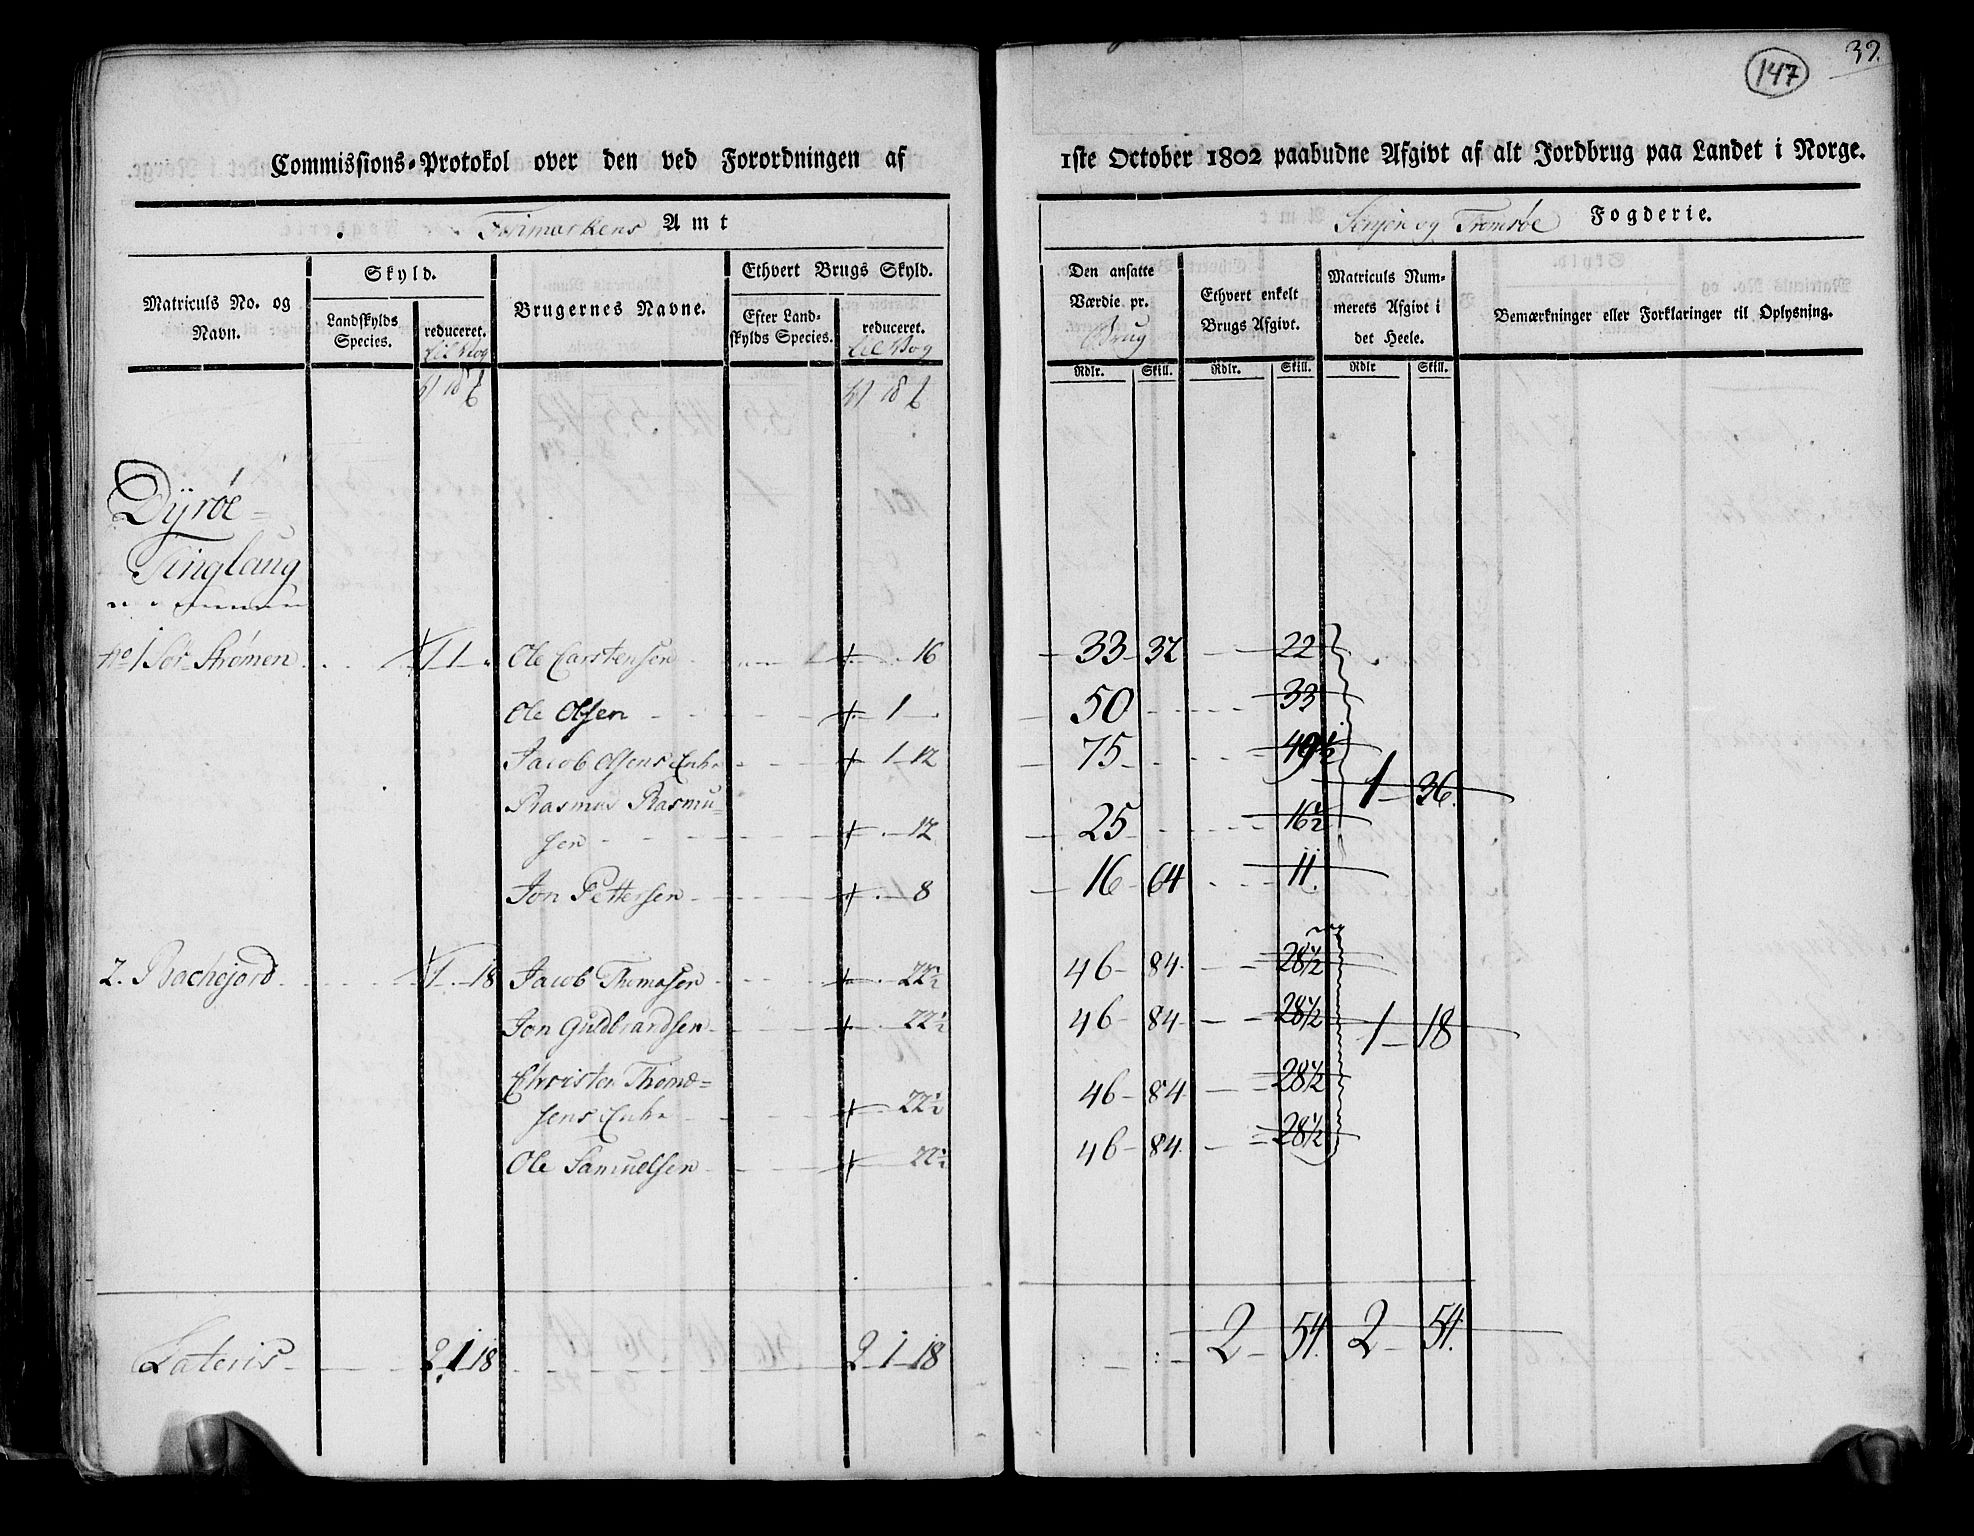 147
39.
Commissions-Protokol over den ved Forordningen af
1ste October 1802 paabudne Afgivt af alt Jordbrug paa Landet i Norge.
Finmarkens Amt
Senjen og Tromsøe Fogderie.
Matriculs No. og Navn.
Skyld.
Landskylds Species.
reduceret.
til Vog
Brugernes Navne.
Ethvert Brugs Skyld.
Efter Landskylds Species.
reduceret.
til Vog
Den ansatte Værdie pr.
Brug
Ethvert enkelt Brugs Afgivt.
Matriculs Nummerets Afgivt i det Heele.
Bemærkninger eller Forklaringer til Oplysning.
Rdlr. Skill. Rdlr. Skill. Rdlr Skill.
Dyrøe-
Tinglaug
No 1 Sør Strømen 1 1 Ole Carstensen 16 33 32 22
Ole Olsen 1 50 33
Jacob Olsens Enke 1 12 75 49½
1 36.
Rasmus Rasmu-
sen 12 25 16½
Jon Pettersen 8 16 64 11.
2. Rachejord 1 18 Jacob Thomasen 22½ 46 84 28½
Jon Guldbrandsen 22½ 46 84 28½ 1 18
Christen Thome-
sens Enke 22½ 46 84 28½
Ole Samuelsen 22½ 46 84 28½
Lateris 2 1 18 2 1 18 2 54. 2 54.